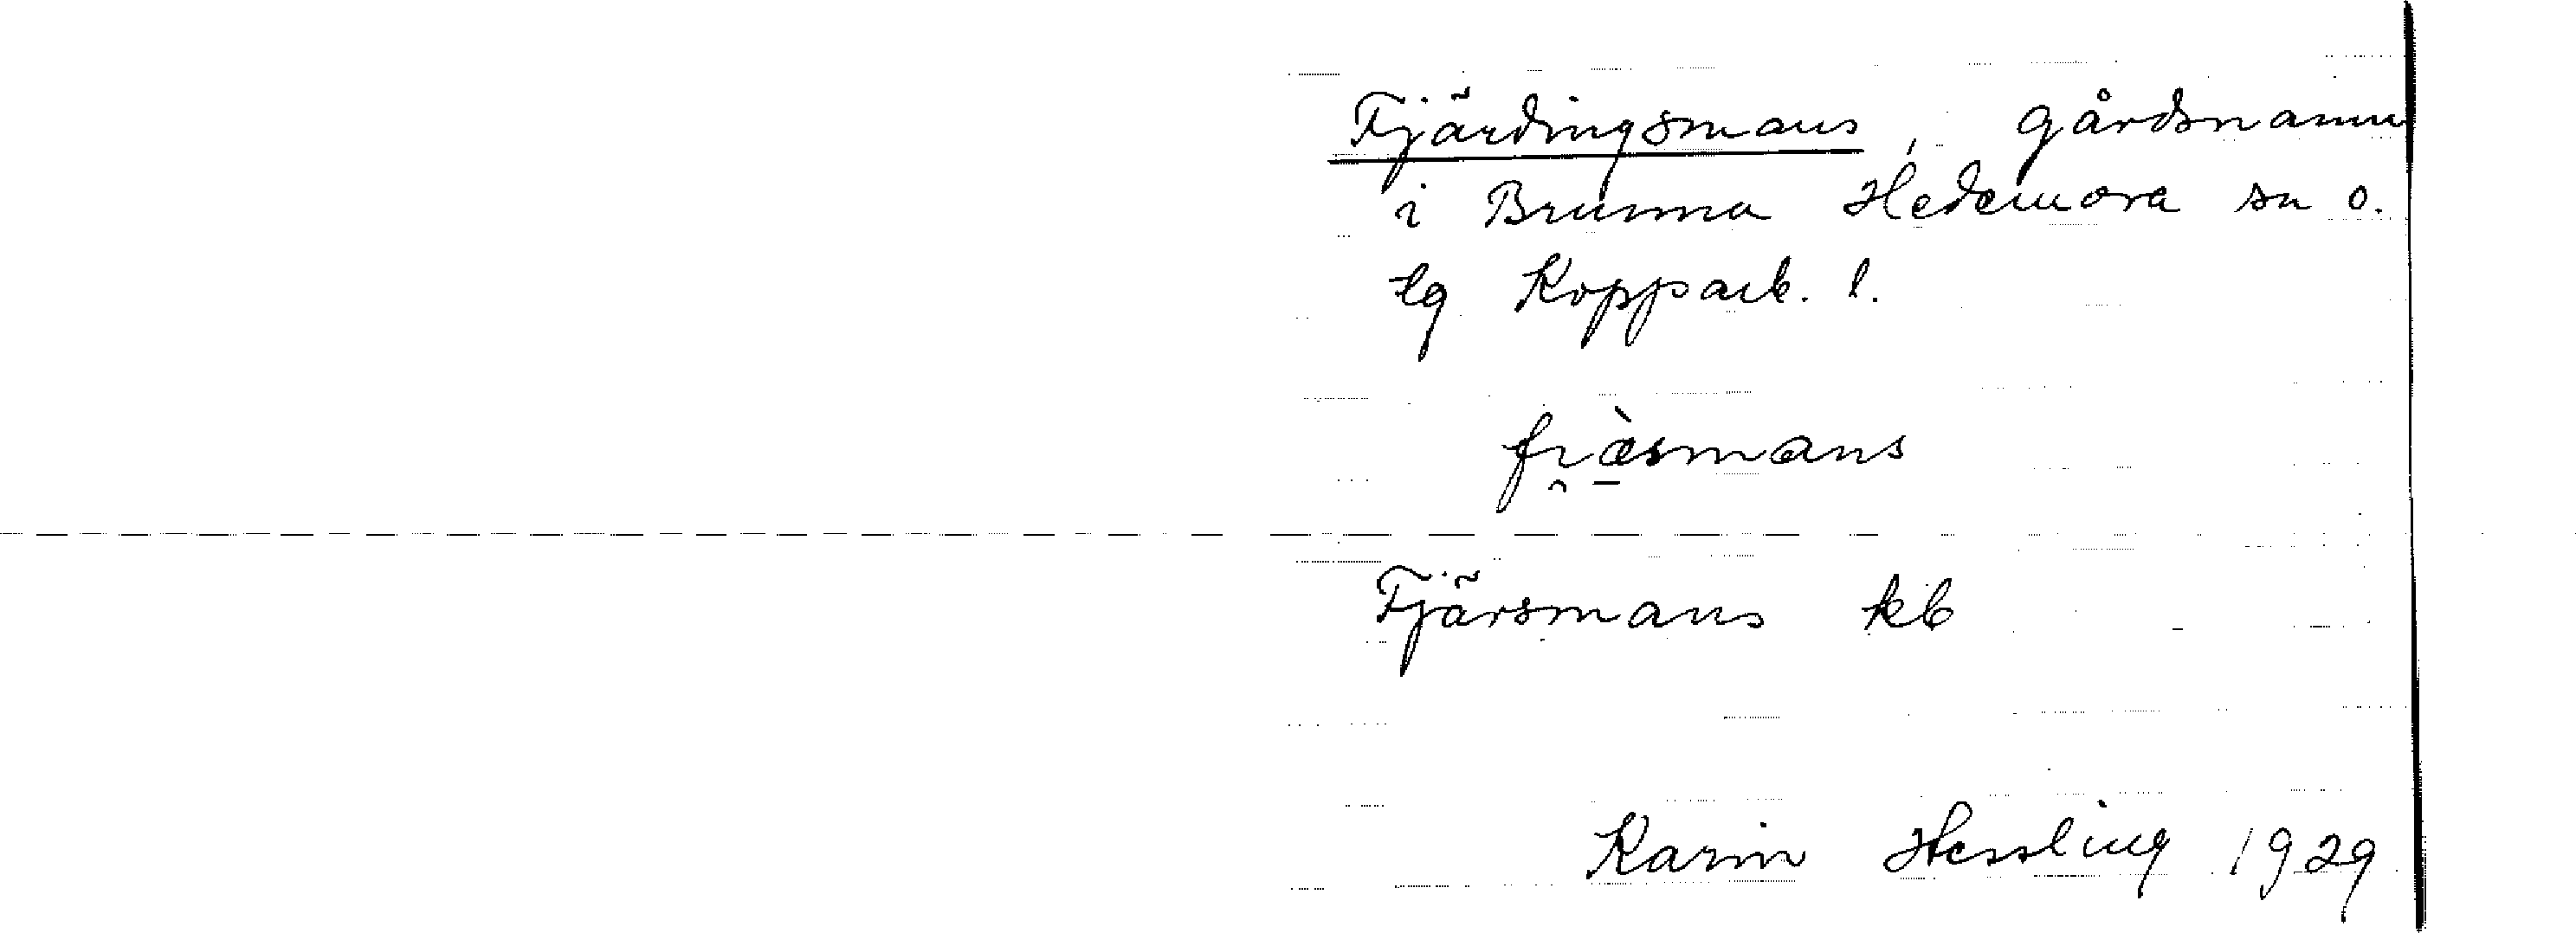 Fjärdingsmans, gårdsnamn
i Brunna Hedemora sn o.
tg Kopparb. l.
fi̯æ̠̀smans
Fjärsmans kb
Karin Hessling 1929